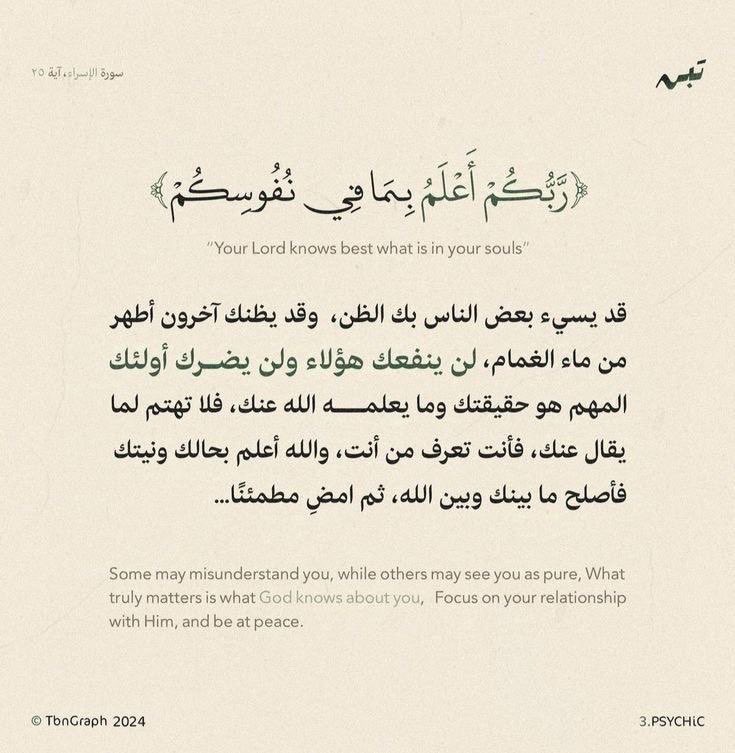 سورة الإسراء، آية ٢٥
تبن
﴿رَبُّكُمْ أَعْلَمُ بِمَا فِي نُفُوسِكُمْ﴾
"Your Lord knows best what is in your souls"
قد يسيء بعض الناس بك الظن، وقد يظنك آخرون أطهر
من ماء الغمام، لن ينفعك هؤلاء ولن يضرك أولئك
المهم هو حقيقتك وما يعلمه الله عنك، فلا تهتم لما
يقال عنك، فأنت تعرف من أنت، والله أعلم بحالك ونيتك
فأصلح ما بينك وبين الله، ثم امضِ مطمئنًا...
Some may misunderstand you, while others may see you as pure, What
truly matters is what God knows about you, Focus on your relationship
with Him, and be at peace.
© TbnGraph 2024
3.PSYCHiC